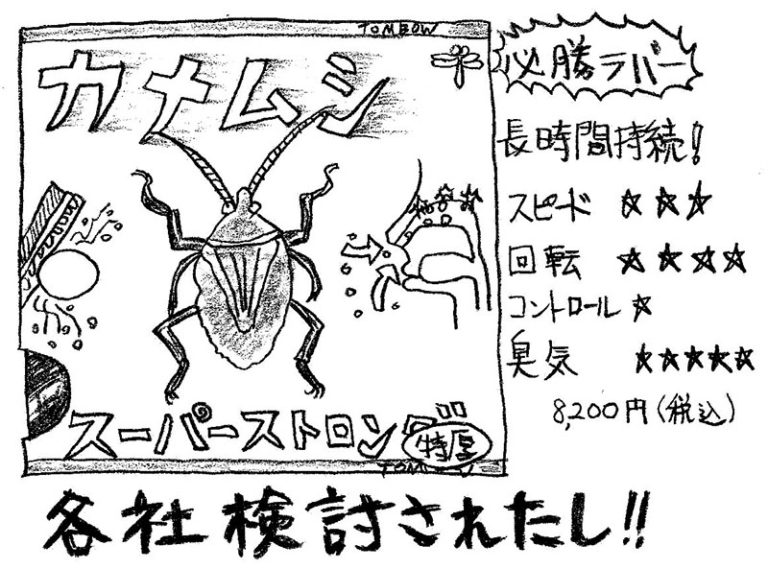 TOMBOW
カナムシ
必勝ラバー
長時間持続!
スピード ☆☆☆
回転 ☆☆☆☆
コントロール ☆
臭気 ☆☆☆☆☆
8,200円(税込)
スーパーストロング
特厚
TOMBOW
各社検討されたし!!